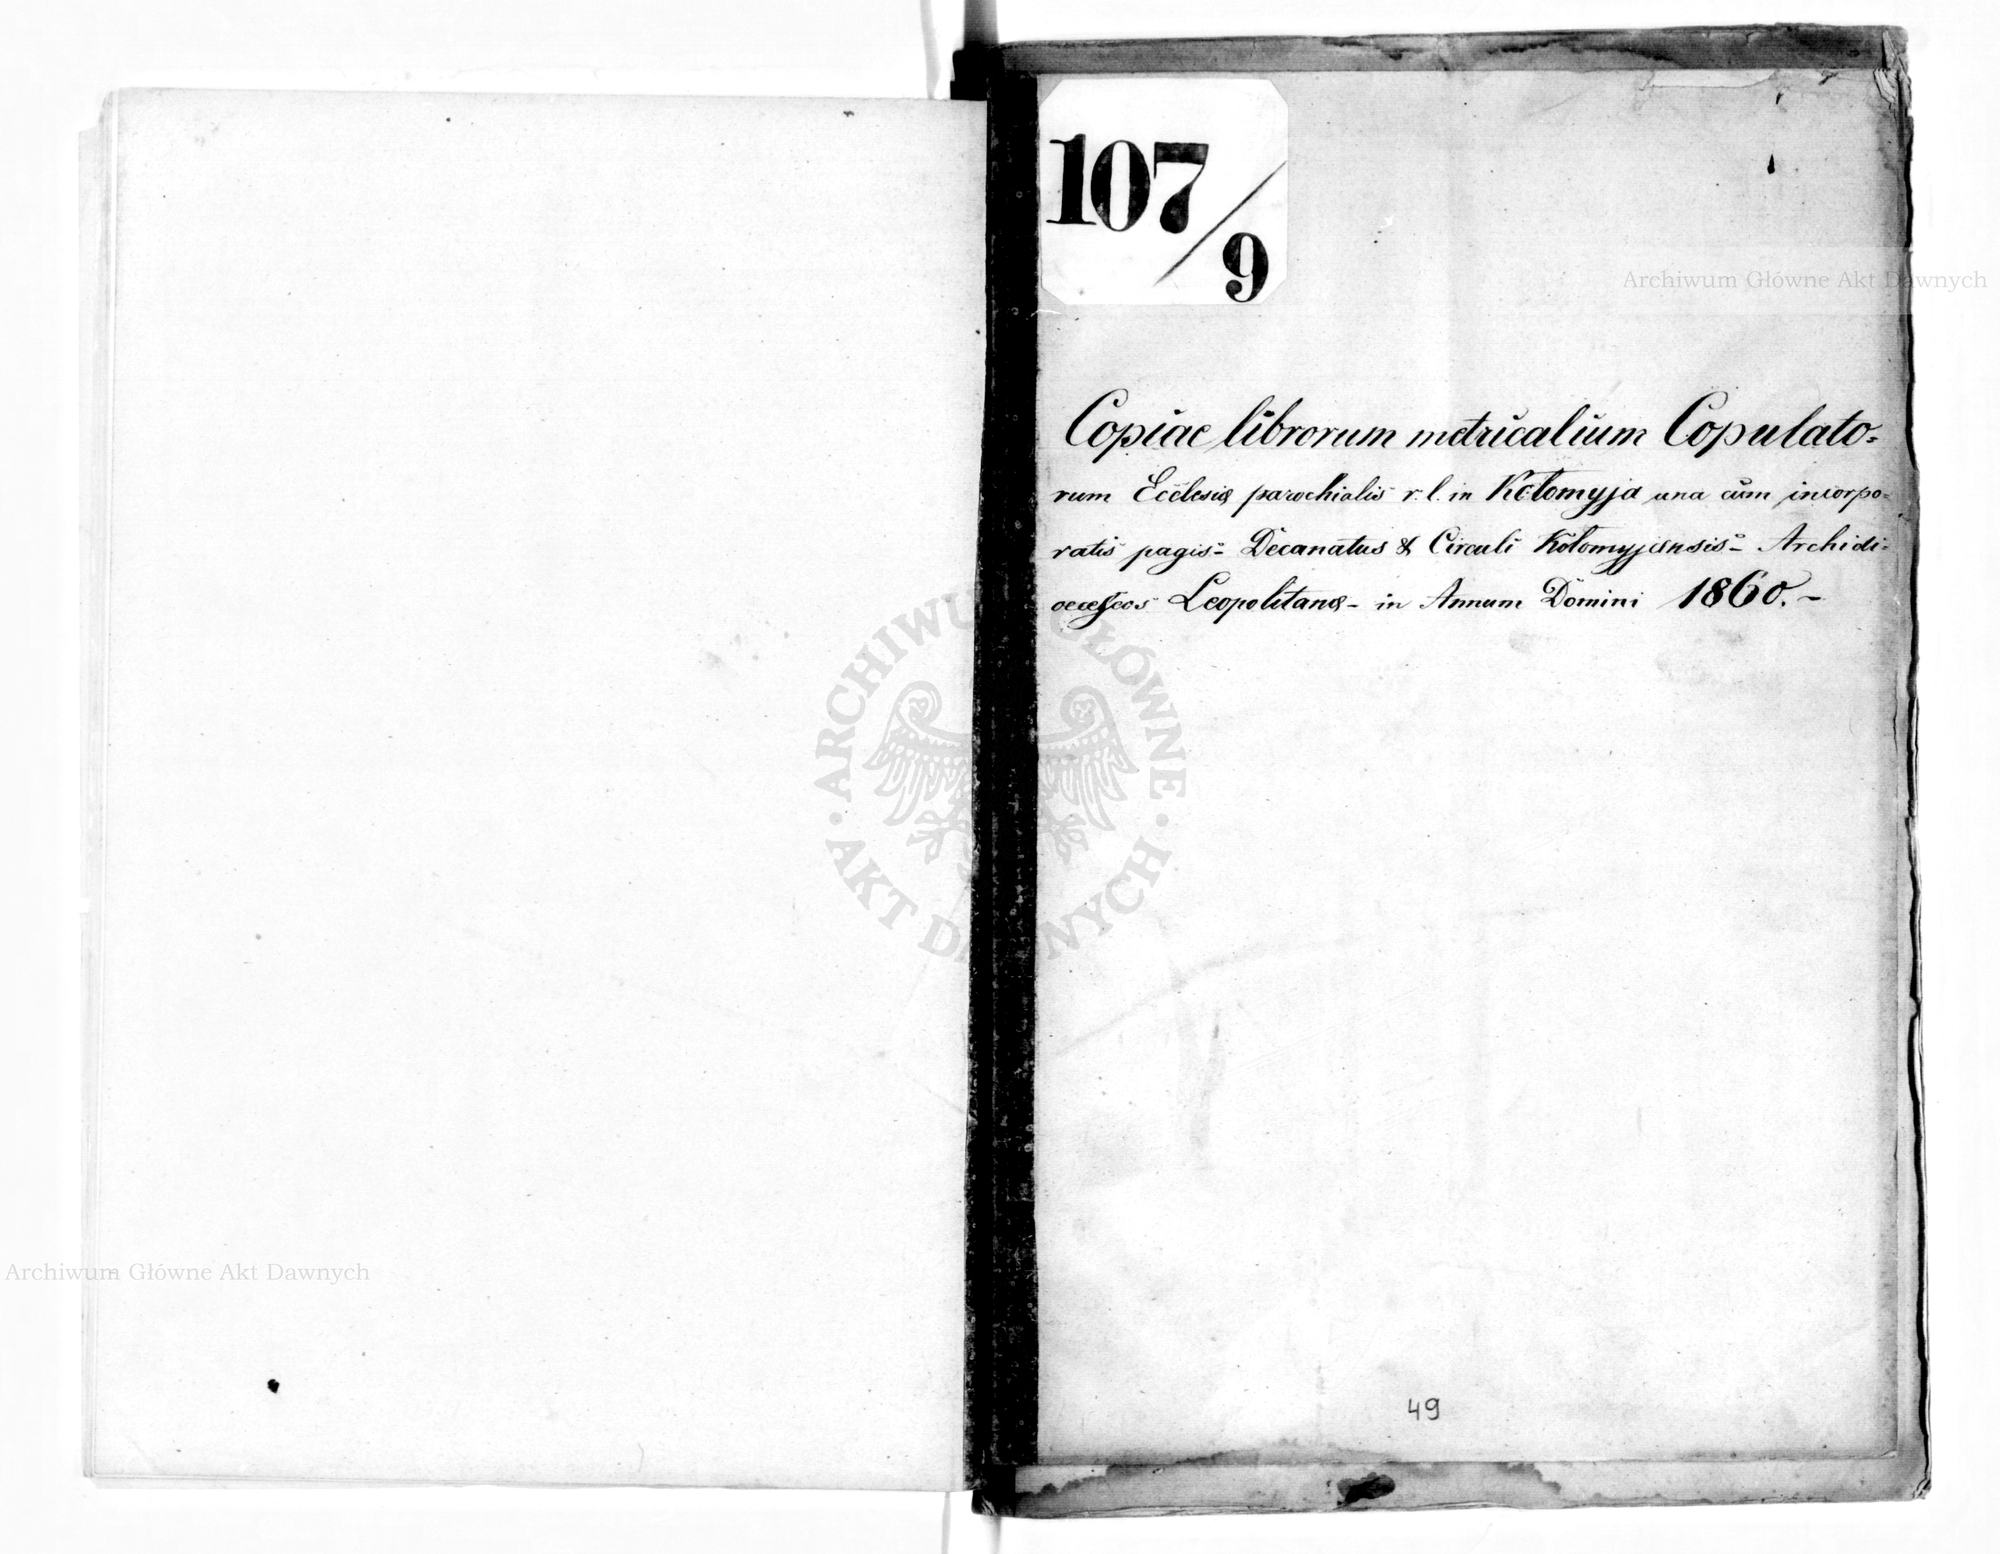 107/9
Archiwum Główne Akt Dawnych
Copiae librorum metricalium Copulato=
rum Ecclesiæ parochialis r. l. in Kołomyja una cum incorpo=
ratis pagis- Decanatus & Circuli Kołomyjensis- Archidi=
oeceseos Leopolitanæ- in Annum Domini 1860.-
ARCHIWUM GŁÓWNE
AKT DAWNYCH
Archiwum Główne Akt Dawnych
49